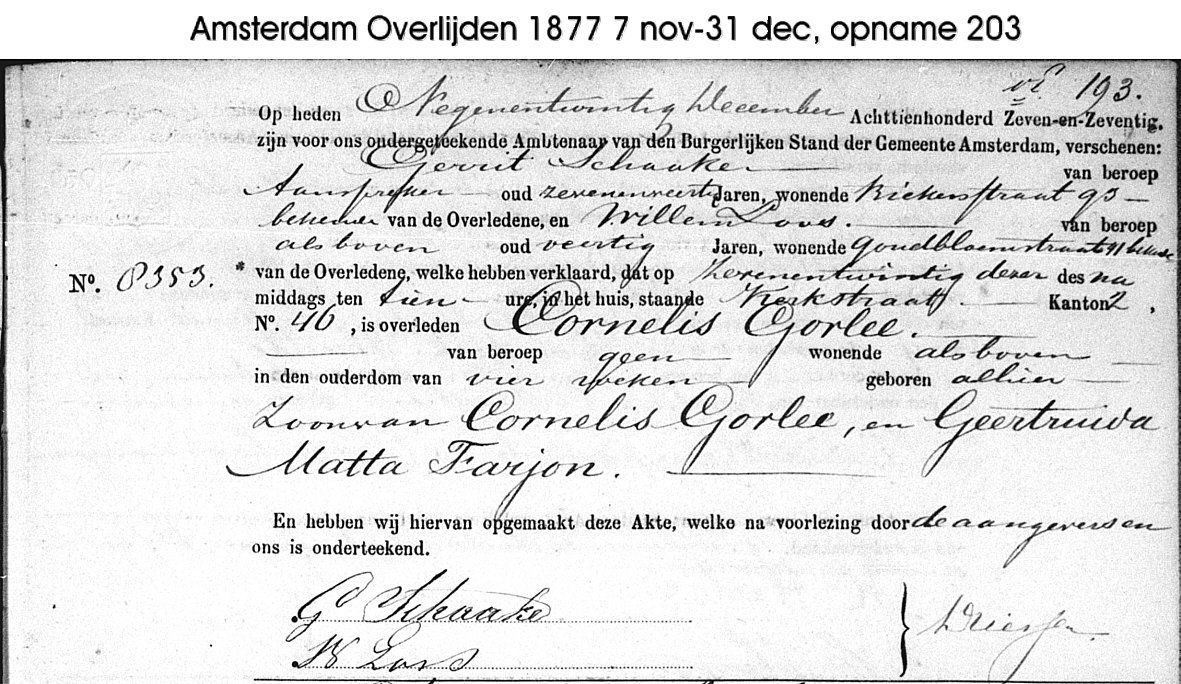 Amsterdam Overlijden 1877 7 nov-31 dec, opname 203
193.
Op heden Negenentwintig December Achttienhonderd Zeven-en-Zeventig.
zijn voor ons ondergeteekende Ambtenaar van den Burgerlijken Stand der Gemeente Amsterdam, verschenen:
Gerrit Schaake van beroep
Aanspreker oud zevenenveertig Jaren, wonende Bickersstraat 93
bekende van de Overledene, en Willem Loos. van beroep
als boven oud veertig Jaren, wonende Goudbloemstraat 41 bekende
No. 8353. * van de Overledene, welke hebben verklaard, dat op zevenentwintig dezer des na
middags ten tien ure, in het huis, staande Kerkstraat Kanton 2,
No. 46, is overleden Cornelis Gorlee.
van beroep geen wonende als boven
in den ouderdom van vier weken geboren alhier
Zoon van Cornelis Gorlee, en Geertruida
Matta Farjon.
En hebben wij hiervan opgemaakt deze Akte, welke na voorlezing door de aangevers en
ons is onderteekend.
G Schaake
W Loos